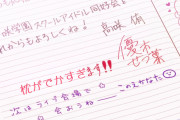 咲学園スクールアイドル同好会!
れからもよろしくね!
高咲 侑
優木
せつ菜
枕がでかすぎます!!
次はライブ会場で
会おうね
このえかなた